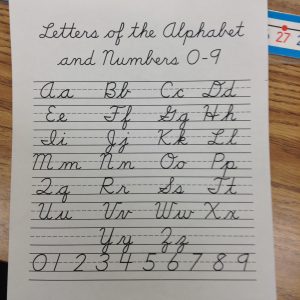 Letters of the Alphabet
and Numbers 0-9
Aa Bb Cc Dd
Ee Ff Gg Hh
Ii Jj Kk Ll
Mm Nn Oo Pp
Qq Rr Ss Tt
Uu Vv Ww Xx
Yy Zz
0 1 2 3 4 5 6 7 8 9
27